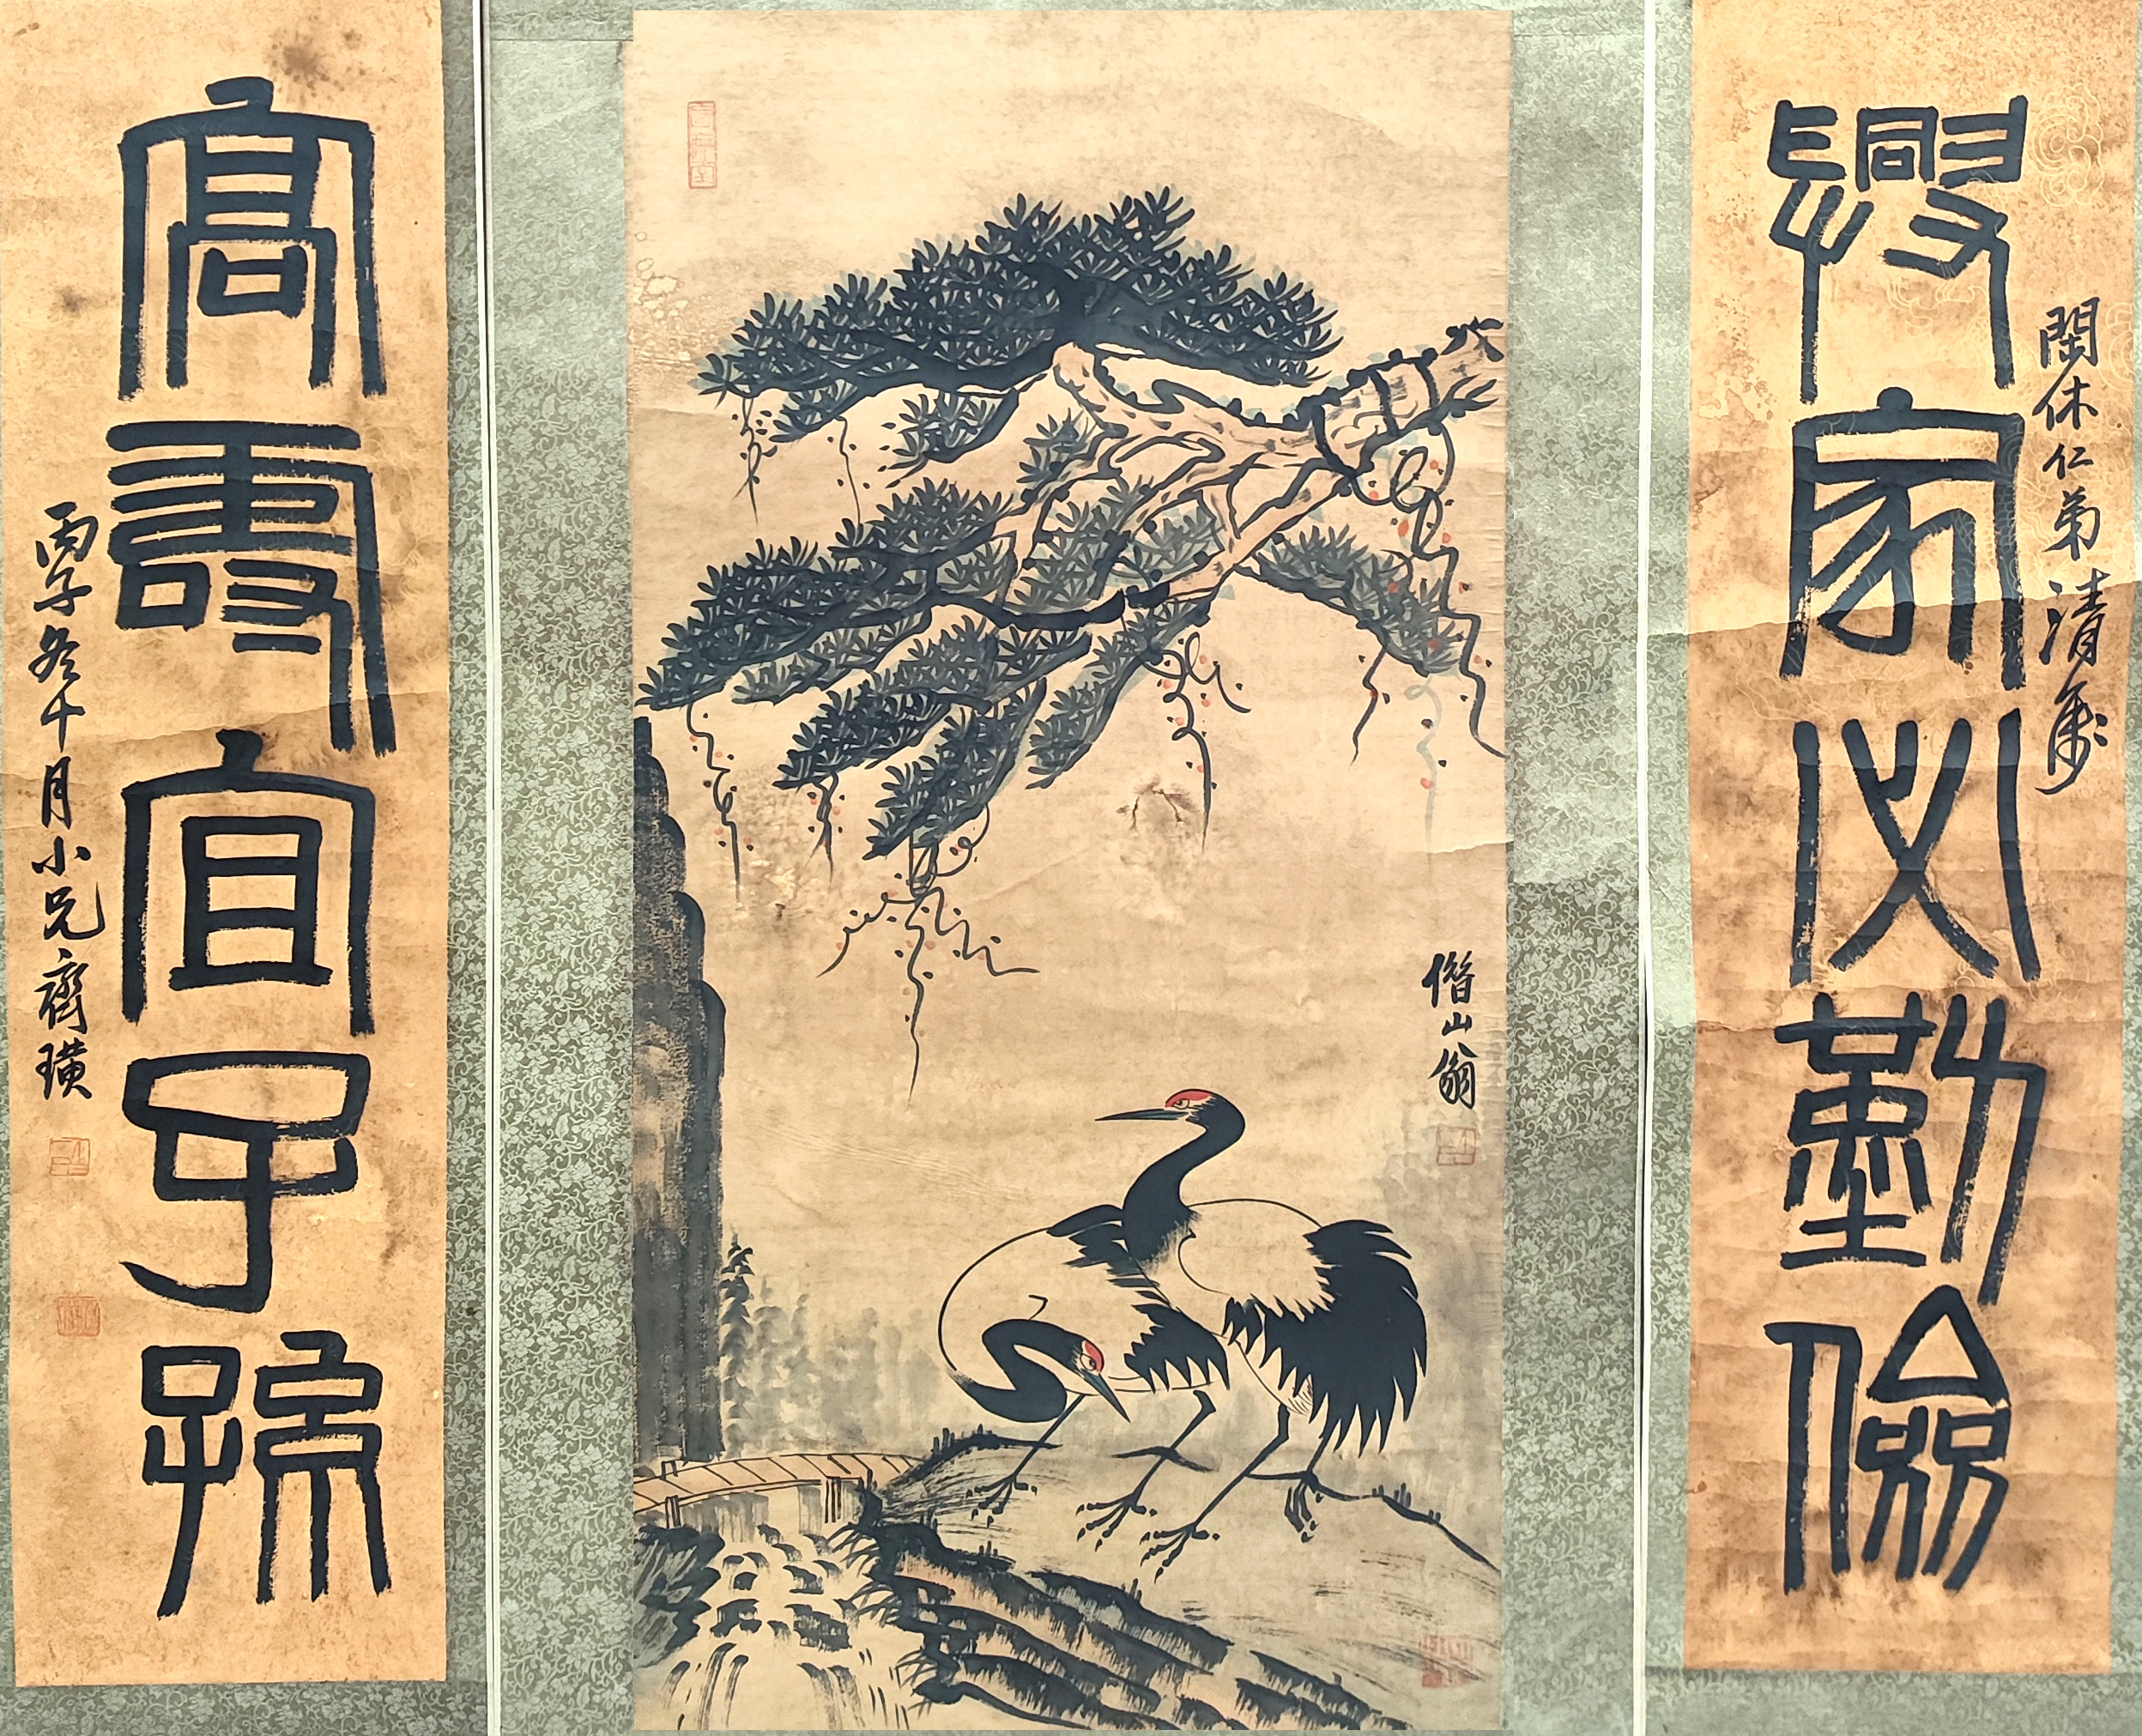 閑休仁弟清屬
興家必勤儉
借山翁
高壽宜子孫
丙子冬十月小兄齊璜